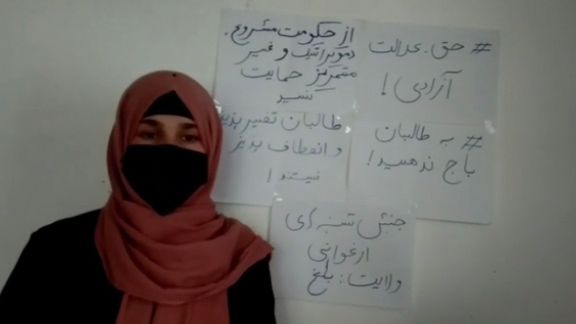 # حق. عدالت
آزادی!
از حکومت مشروع.
دموکراتیک و غیر
متمرکز حمایت
کنید
# به طالبان
باج ندهید!
طالبان تغیر پذیر
و انعطاف پذیر
نیستند!
جنبش شنبه های
ارغوانی
ولایت: بلخ